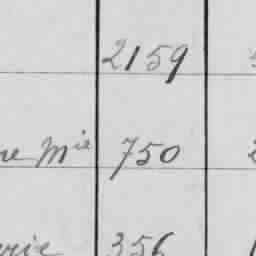 2159
re Mie 750
rie 356